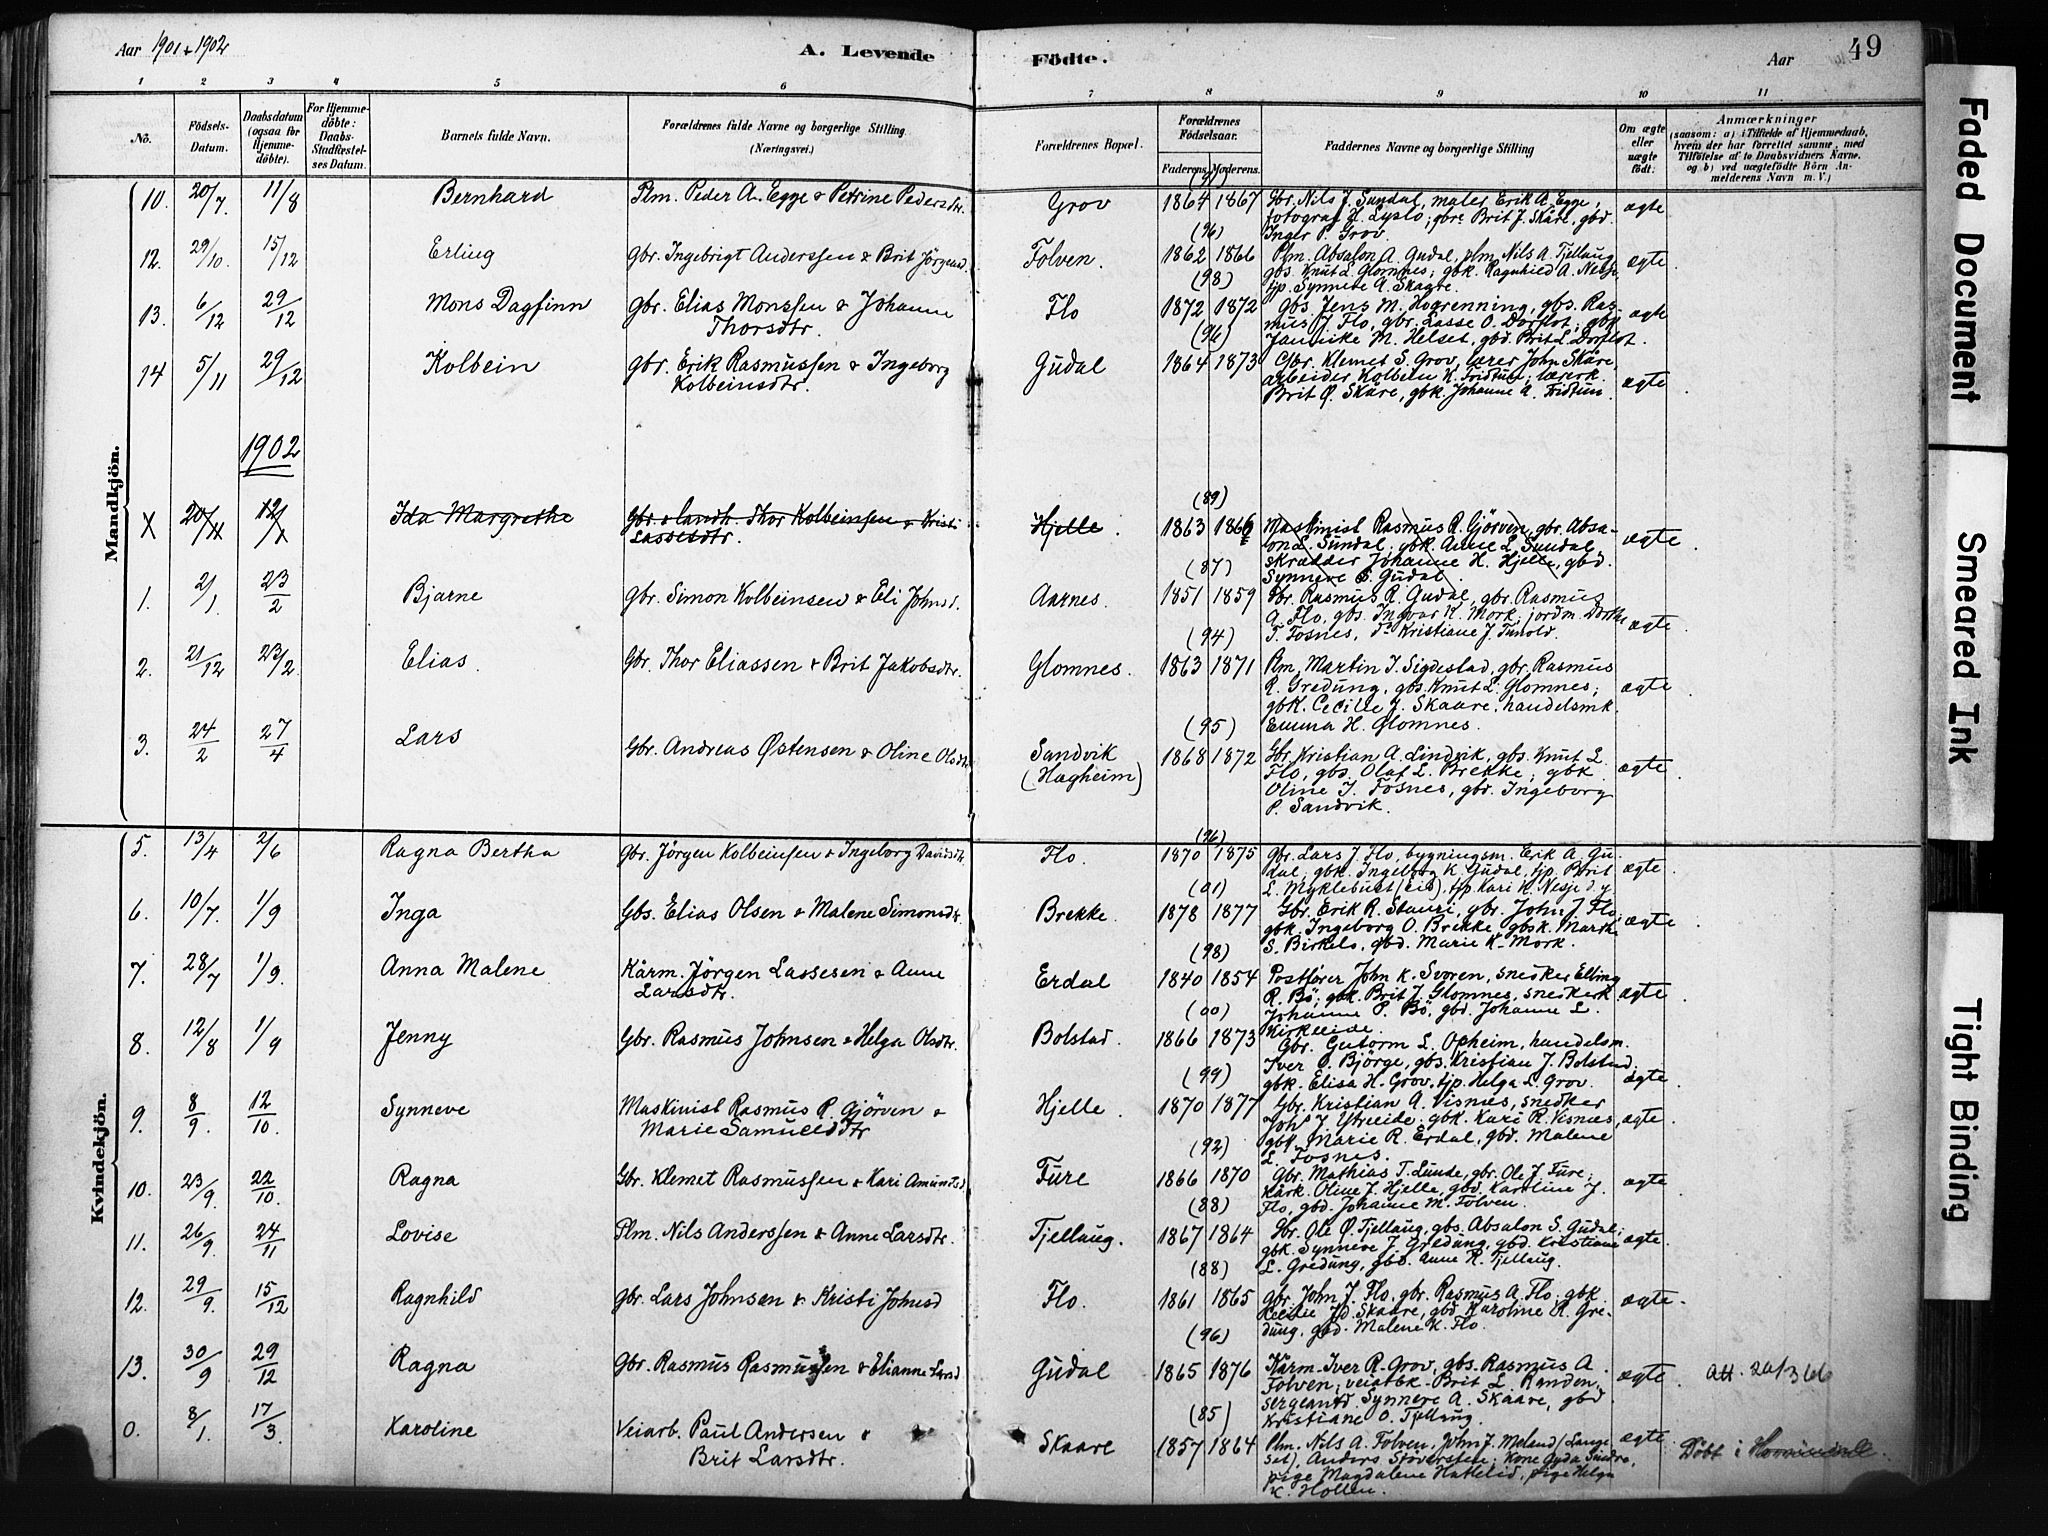 Aar 1901 + 1902
A. Levende
Födte.
Aar
49
1 2 3 4 5 6 7 8 9 10 11
No.
Födsels-
Datum.
Daabsdatum
(ogsaa for
Hjemme-
döbte).
For Hjemme-
döbte:
Daabs-
Stadfæstel-
ses Datum.
Barnets fulde Navn.
Forældrenes fulde Navne og borgerlige Stilling
(Næringsvei.)
Forældrenes Bopæl.
Forældrenes
Födselsaar.
Faderens. Moderens.
Faddernes Navne og borgerlige Stilling
Om ægte
eller
uægte
födt.
Anmærkninger
(saasom: a) i Tilfælde af Hjemmedaab,
hvem der har forrettet samme, med
Tilföielse af to Daabsvidners Navne.
og b) ved uægtefödte Börn An-
melderens Navn m. V.)
Mandkjön.
10. 20/7. 11/8 Bernhard Plm. Peder A. Egge & Petrine Pedersdtr. Grov 1864 1867 Gbr. Nils J. Sundal, maler Erik A. Egge,
fotograf H. Lyslo; gbr. Brit J. Skåre, gbd.
Inger P. Grov.
ægte
(96)
12. 29/10. 15/12 Erling gbr. Ingebrigt Anderssen & Brit Jörgensd. Folven. 1862 1866 Plm. Absalon A. Gudal, plm. Nils A. Tjellaug
gbs. Knut L. Glomnes; gbk. Ragnhild A. Nesje,
tjp. Synneve A. Skagte.
ægte.
(98)
13. 6/12 29/12 Mons Dagfinn gbr. Elias Monssen & Johanne
Thorsdtr.
Flo 1872 1872 gbs. Jens M. Hogrenning, gbs. Ras-
mus J. Flo, gbr. Lasse O. Dorflot; gbk.
Jannike M. Helset, gbd. Brit L. Dorflot.
ægte
(96)
14 5/11 29/12 Kolbein gbr. Erik Rasmussen & Ingeborg
Kolbeinsdtr.
Gudal 1864 1873 Gbr. Klemet S. Grov, lærer John Skåre,
arbeider Kolbein K. Fridtun; lærerk.
Brit Ø. Skåre, gbk. Johanne A. Fridtun.
ægte.
1902
(89)
X 20/11 12/1 Ida Margrethe Gbr. & landh. Thor Kolbeinsen & Kristi
Lassesdtr.
Hjelle. 1863 1866 Maskinist Rasmus R. Gjörven, gbr. Absa-
lon L. Sundal; gbk. Anne L. Sundal
skrædder Johanne H. Hjelle, gbd.
Synneve S. Gudal.
ægte.
(87)
1. 2/1. 23/2 Bjarne gbr. Simon Kolbeinsen & Eli Johnsd. Aarnes. 1851 1859 Gbr. Rasmus R. Gudal, gbr. Rasmus
A. Flo, gbs. Ingvar K. Mork; jordm. Dorthe
T. Fosnes, do Kristiane J. Tunold.
ægte.
(94)
2. 21/12 23/2 Elias. Gbr. Thor Eliassen & Brit Jakobsdtr. Glomnes. 1863 1871 Plm. Martin J. Sigdestad, gbr. Rasmus
R. Gredung, gbs. Knut L. Glomnes;
gbk. Cecilie J. Skaare, handelsmk.
Emma H. Glomnes.
ægte.
(95)
3. 24/2 27/4 Lars Gbr. Andreas Østensen & Oline Olsdtr. Sandvik
(Hagheim)
1868 1872 Gbr. Kristian A. Lindvik, gbs. Knut L.
Flo, gbs. Olaf L. Brekke; gbk.
Oline J. Fosnes, gbd. Ingeborg
P. Sandvik.
ægte.
Kvindekjön.
(96)
5. 13/4 2/6 Ragna Bertha Gbr. Jörgen Kolbeinsen & Ingeborg Davidsdtr. Flo. 1870 1875 gbr. Lars J. Flo, bygningsm. Erik A. Gu-
dal, gbk. Ingeborg K. Gudal, tjp. Brit
L. Myklebust (Eid), tjp. Kari K. Nesje d.y.
ægte.
(01)
6. 10/7. 1/9 Inga Gbs. Elias Olsen & Malene Simonsdtr. Brekke. 1878 1877 Gbr. Erik R. Stauri, gbr. John J. Flo;
gbk. Ingeborg O. Brekke, gbsk. Marthe
S. Birkelo, gbd. Marie K. Mork.
ægte.
(98)
7. 28/7 1/9. Anna Malene Kårm. Jörgen Lassesen & Anne
Larsdtr.
Erdal 1840 1854 Postförer John K. Svoren, snedker Elling
R. Bö; gbk. Brit J. Glomnes, snedkerk
Johanne P. Bö, gbd. Johanne L.
Kirkeeide.
ægte.
(00)
8. 12/8 1/9 Jenny Gbr. Rasmus Johnsen & Helga Olsdtr. Bolstad. 1866 1873 Gbr. Gutorm L. Opheim, handelsm.
Iver O. Björge, gbs. Kristian J. Bolstad;
gbk. Elisa H. Grov, tjp. Helga L. Grov.
ægte.
(99)
9. 8/9. 12/10. Synneve Maskinist Rasmus R. Gjörven &
Marie Samuelsdtr
Hjelle. 1870 1877 Gbr. Kristian A. Visnes, snedker
Johs J. Ytreeide; gbk. Kari R. Visnes,
gbk. Marie R. Erdal, gbd. Malene
L. Fosnes.
ægte.
(92)
10. 23/9. 22/10. Ragna Gbr. Klemet Rasmussen & Kari Amundsd. Fure 1866 1870 Gbr. Mathias T. Lunde, gbr. Ole J. Fure;
Kårk. Oline J. Hjelle, gbd. Karoline J.
Flo, gbd. Johanne M. Folven.
ægte.
(88)
11. 26/9. 24/11 Lovise Plm. Nils Anderssen & Anne Larsdtr. Tjellaug. 1867 1864 Gbr. Ole Ø. Tjellaug, gbs. Absalon S. Gudal;
gbk. Synneve J. Gredung, gbd. Kristiane
L. Gredung, gbd. Anne R. Tjellaug.
ægte.
(88)
12. 29/9. 15/12 Ragnhild gbr. Lars Johnsen & Kristi Johnsd Flo. 1861 1865 gbr. John J. Flo, gbr. Rasmus A. Flo; gbk.
Cecilie Jd. Skaare, gbd. Karoline R. Gre-
dung, gbd. Malene K. Flo.
ægte.
(96)
13. 30/9 29/12 Ragna Gbr. Rasmus Rasmussen & Elianne Larsd Gudal 1865 1876 Kårm. Iver R. Grov, gbs. Rasmus A.
Folven; veiarbk. Brit L. Randen,
sergeantd. Synneve A. Skaare, gbd.
Kristiane O. Tjellaug.
ægte. att. 20/3 66
(85)
0. 8/1. 17/3. Karoline Veiarb. Paul Andersen &
Brit Larsdtr.
Skaare 1857 1864 Plm. Nils A. Folven, John J. Meland (Lange-
set), Anders Sioverssen; Kone Gyda Sindre,
pige Magdalene Hattelid, pige Helga
K. Hollen.
ægte. Döbt i
Faded Document
Smeared Ink
Tight Binding